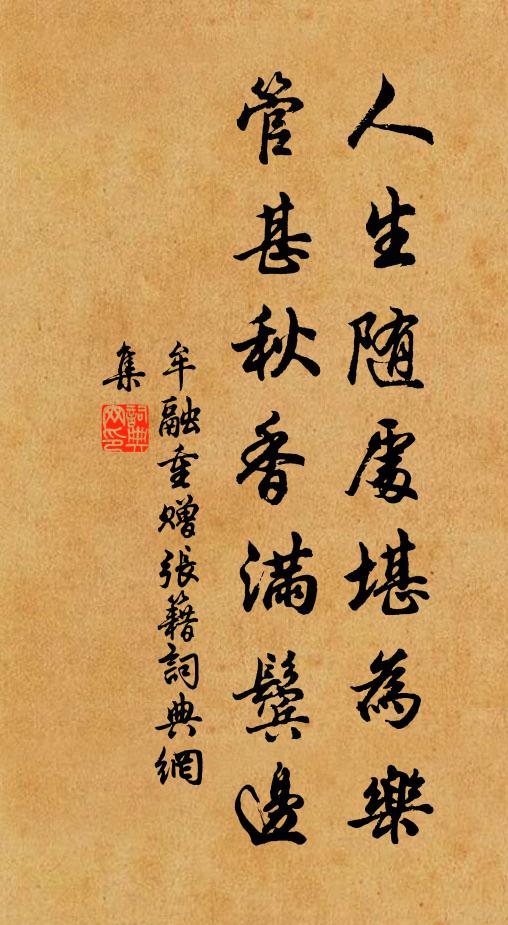 人生随處堪為樂
管甚秋香滿鬢邊
牟融重贈張籍詞典網
集
詞典网印